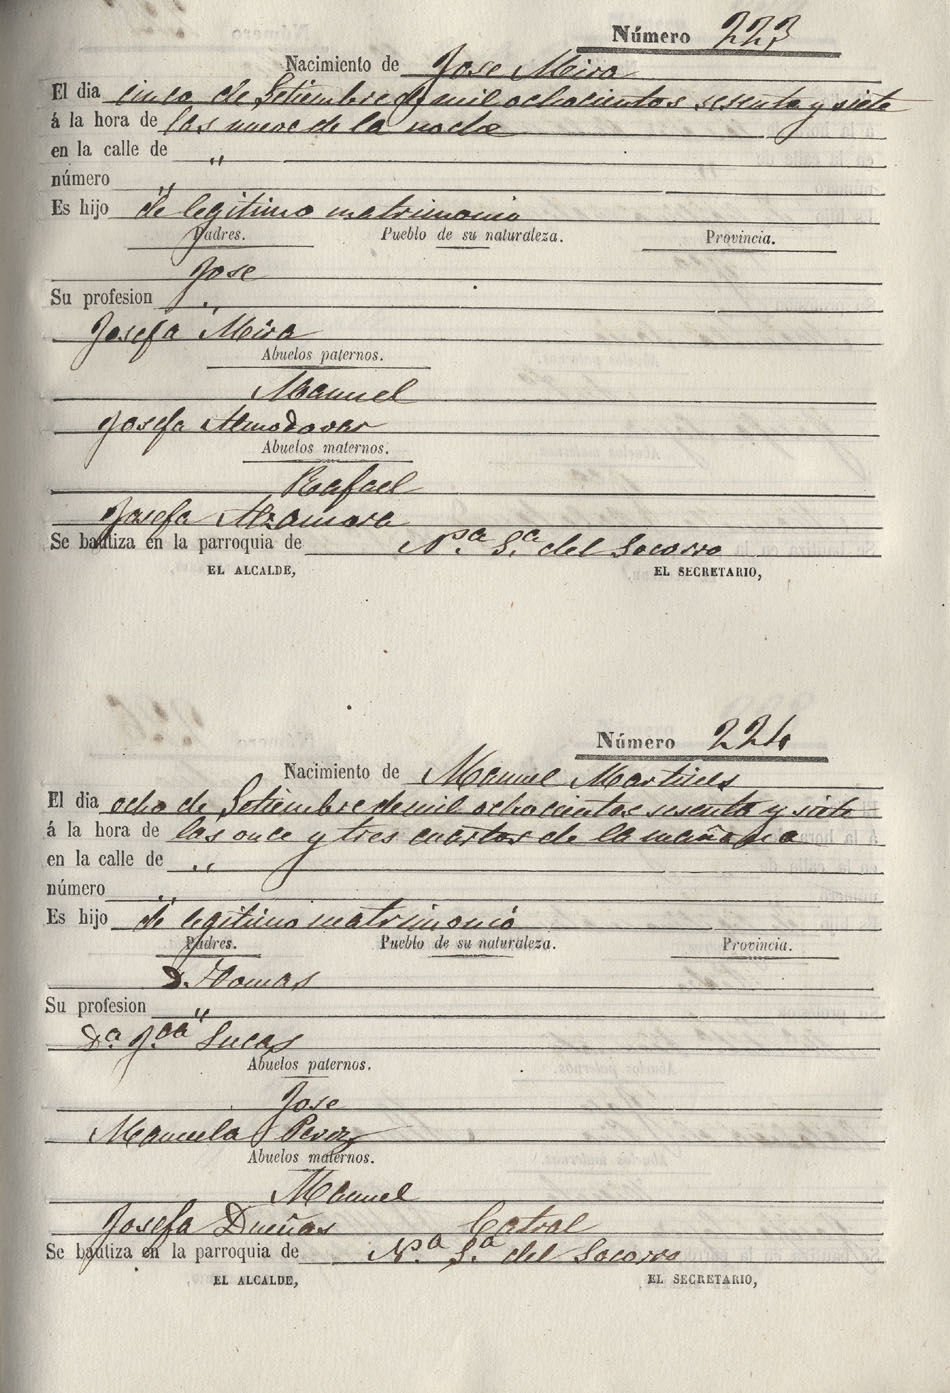 Número 223
Nacimiento de Jose Mira
El dia cinco de Setiembre de mil ochocientos sesenta y siete
á la hora de las nueve de la noche
en la calle de "
número "
Es hijo de legitimo matrimonio
Padres. Pueblo de su naturaleza. Provincia.
Jose
Su profesion "
Josefa Mira
Abuelos paternos.
Manuel
Josefa Almodovar
Abuelos maternos.
Rafael
Josefa Alzamora
Se bautiza en la parroquia de Nª Sª del Socorro
EL ALCALDE, EL SECRETARIO,
Número 224
Nacimiento de Manuel
El dia ocho de Setiembre de mil ochocientos sesenta y siete
á la hora de las once y tres cuartos de la mañana
en la calle de "
número "
Es hijo de legitimo matrimonio
Padres. Pueblo de su naturaleza. Provincia.
D. Tomas
Su profesion "
Dª J.ªª Lucas
Abuelos paternos.
Jose
Manuela Perez
Abuelos maternos.
Manuel
Josefa Dueñas Catral
Se bautiza en la parroquia de Nª Sª del Socorro
EL ALCALDE, EL SECRETARIO,